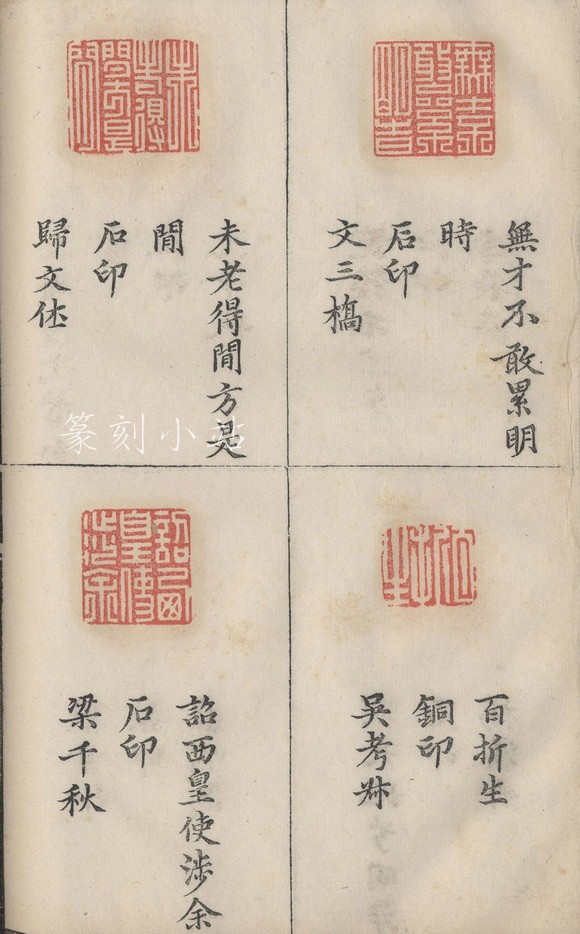 無才不敢累明
時
石印
文三橋
未老得閒方是
閒
石印
歸文休
百折生
銅印
吳考叔
詔西皇使涉余
石印
梁千秋
篆刻小站